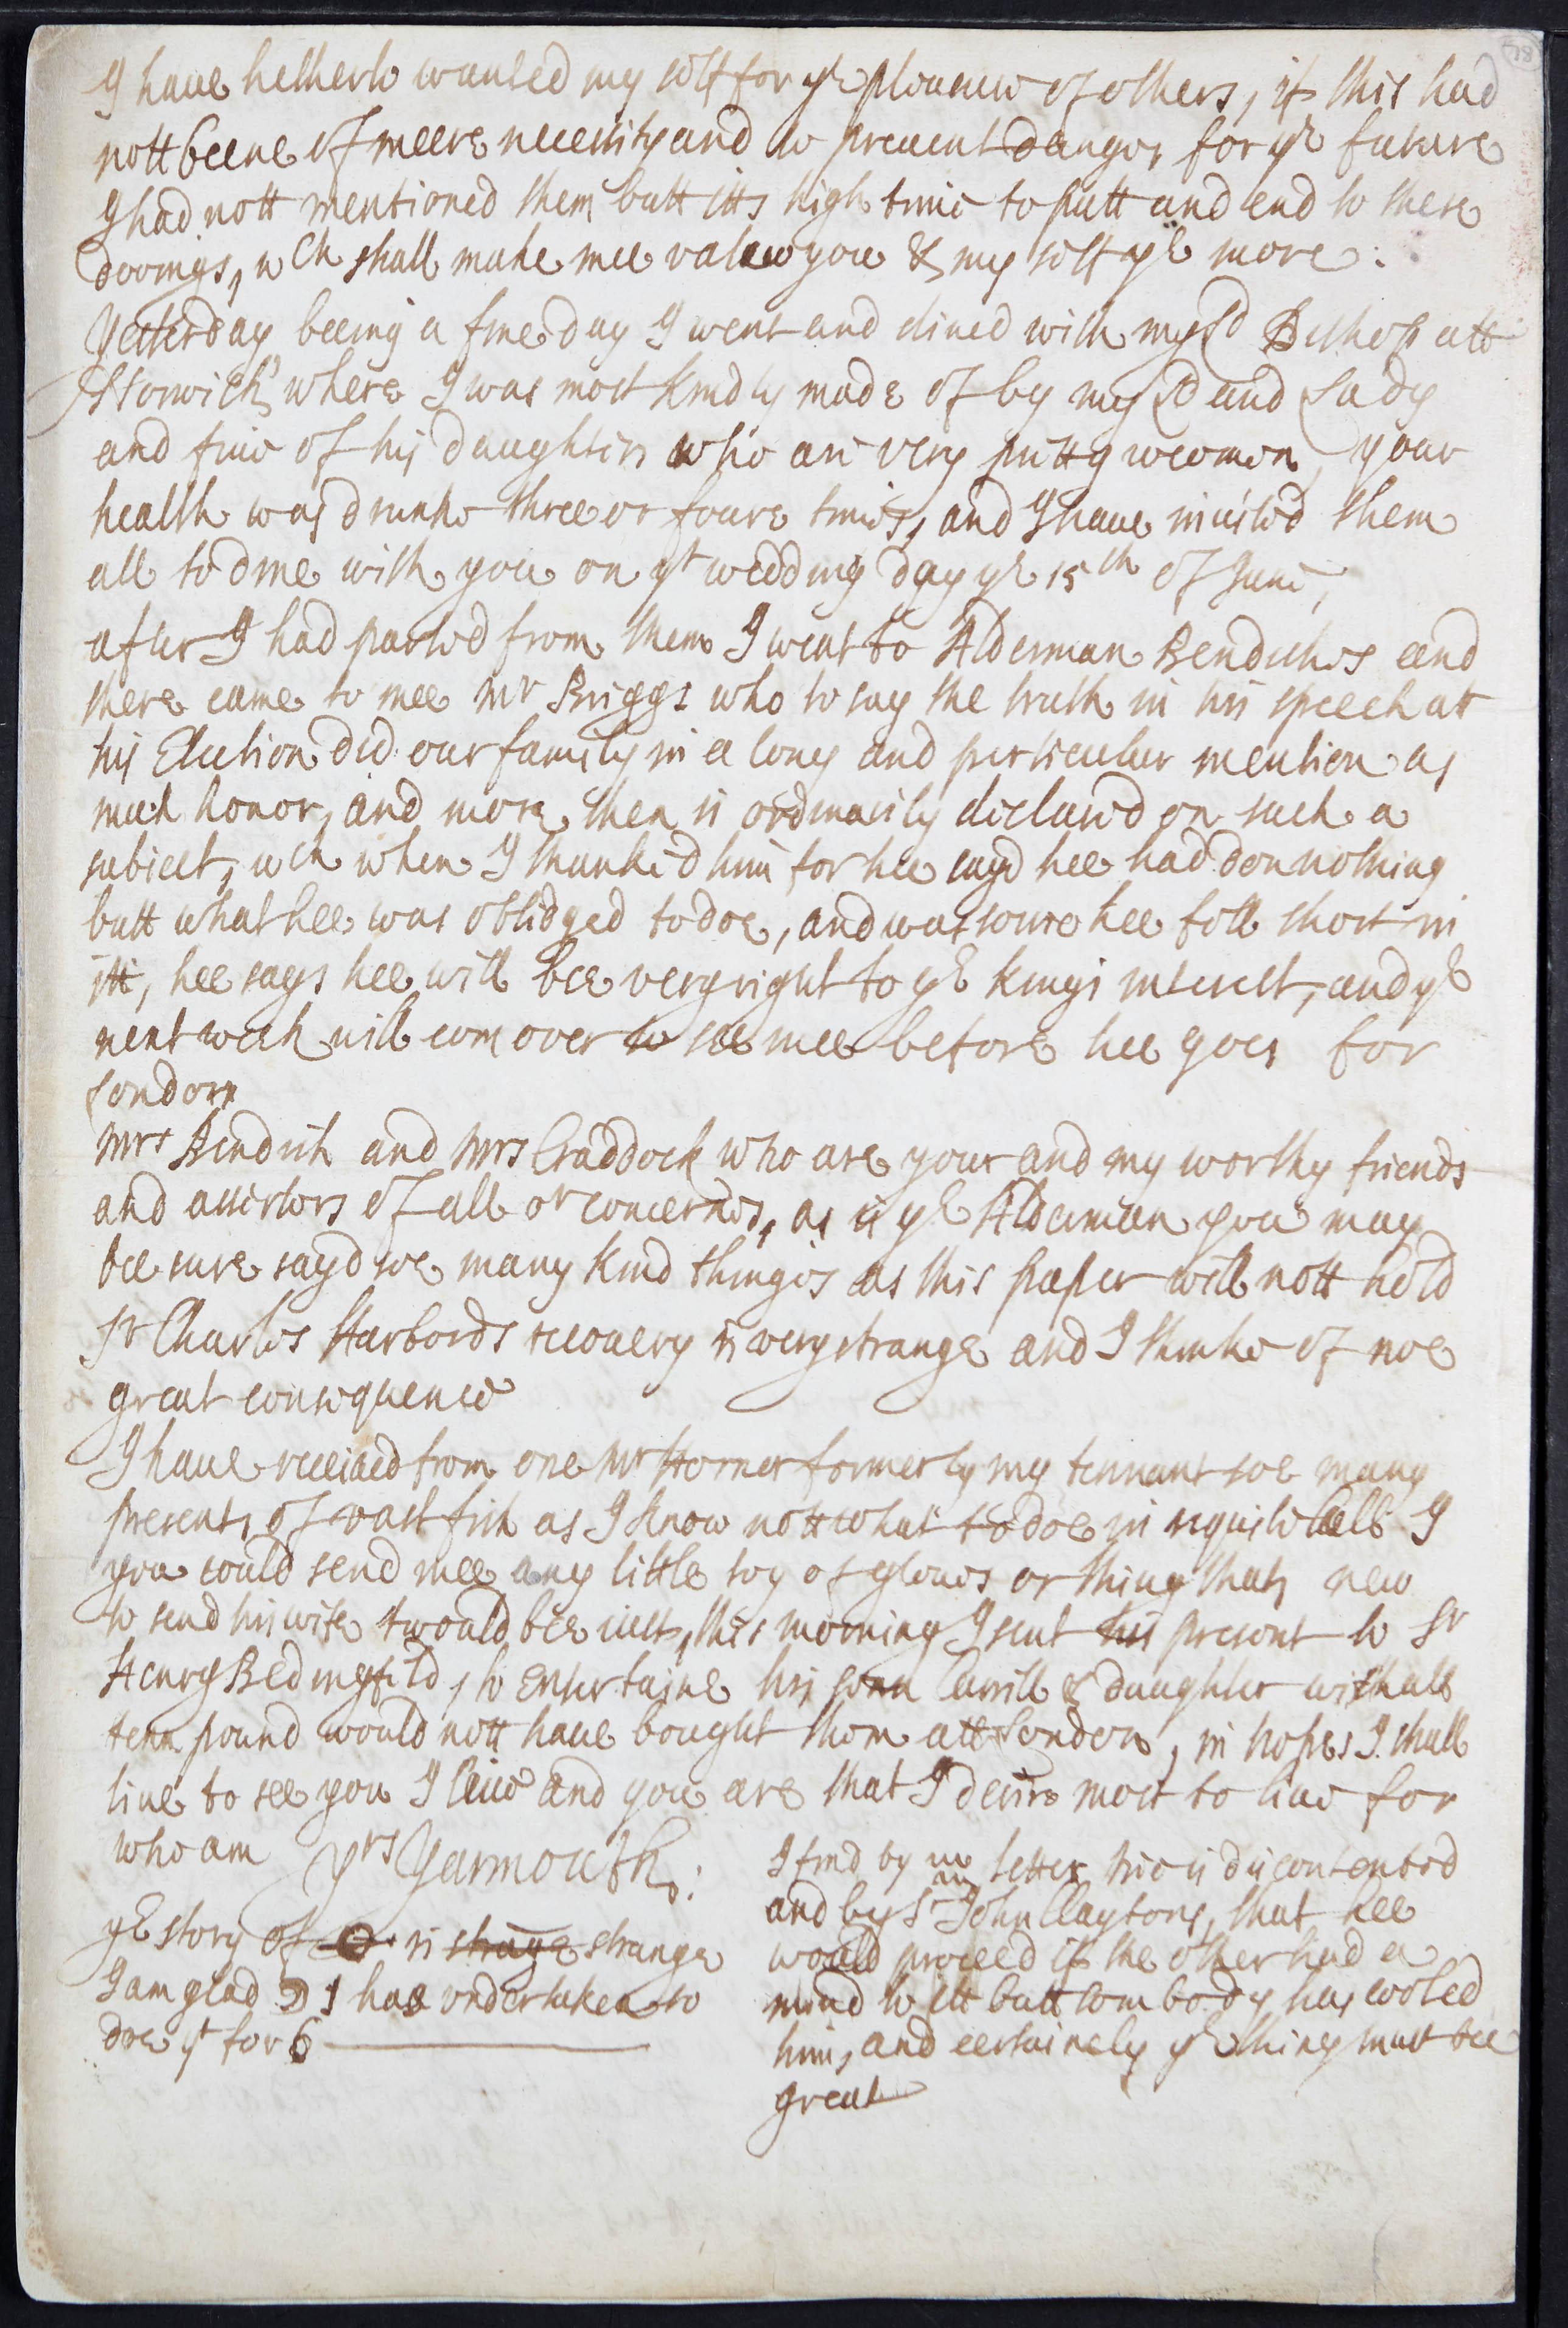 78
I haue hetherto wanted my self for ye pleasure of others, if this had
nott beene of meere necessity and to preuent danger for ye future
I had nott mentioned them butt itts high time to putt and end to these
dooings, wch shall make mee valew you & my self ye more:
Yesterday beeing a fine day I went and dined with my Ld Bishop att
Norwich, where I was most kindly made of by my Ld and Lady
and fiue of his daughters who are very pritty weomen, your
health was drunke three or foure times, and I haue inuited them
all to dine with you on yt wedding day ye 15th of June,
after I had parted from them I went to Alderman Bendishes and
there came to mee Mr Briggs who to say the truth in his speech att
his Election did our family in a long and perticculer mention as
much honor, and more then is ordinarily diclared on such a
subiect, wch when I thanked him for hee sayd hee had don nothing
butt what hee was oblidged to doe, and was soure hee fell short in
itt, hee says hee will bee very right to ye kings interest, and ye
next week will com over to see mee before hee goes for
London
Mrs Bendish and Mrs Craddock who are your and my worthy friends
and assistors of all or concernes, as is ye Alderman you may
bee sure sayd soe many kind things as this paper will nott hold
Sr Charles Harbords recouery is very strange and I thinke of noe
great consequence
I haue receiued from one Mr Horner formerly my tennant soe many
presents of vast fish as I know nott what to doe in requitall I
you could send mee any little toy of gloues or thing thats new
to send his wife t'would bee well, this morning I sent his present to Sr
Henry Bedingfild, to Entertaine his sonn Carill & daughter withall
tenn pound would nott haue bought them att London, in hopes I shall
liue to see you I liue and you are that I desire most to liue for
who am yrs Yarmouth:
ye story of is strange strange
I am glad I has vndertaken to
doe yt for 6
I find by my letter hee is discontented
and by Sr John Claytons, that hee
would proceed if the other had a
mind to itt butt som body has cooled
him, and certainely ye thing must bee
great